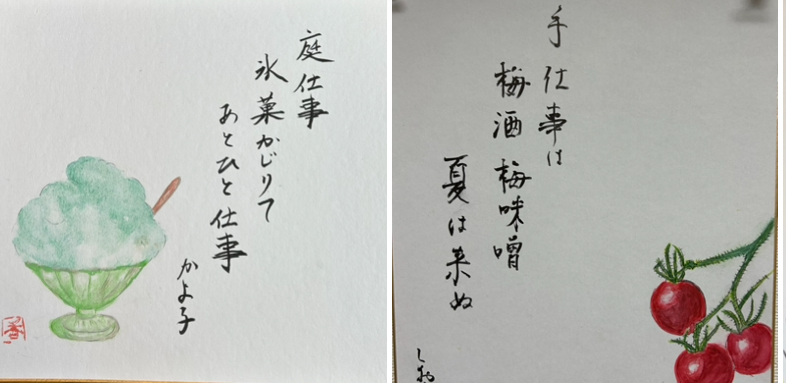 庭仕事
氷菓かじりて
あとひと仕事
かよ子
手仕事は
梅酒梅味噌
夏は来ぬ